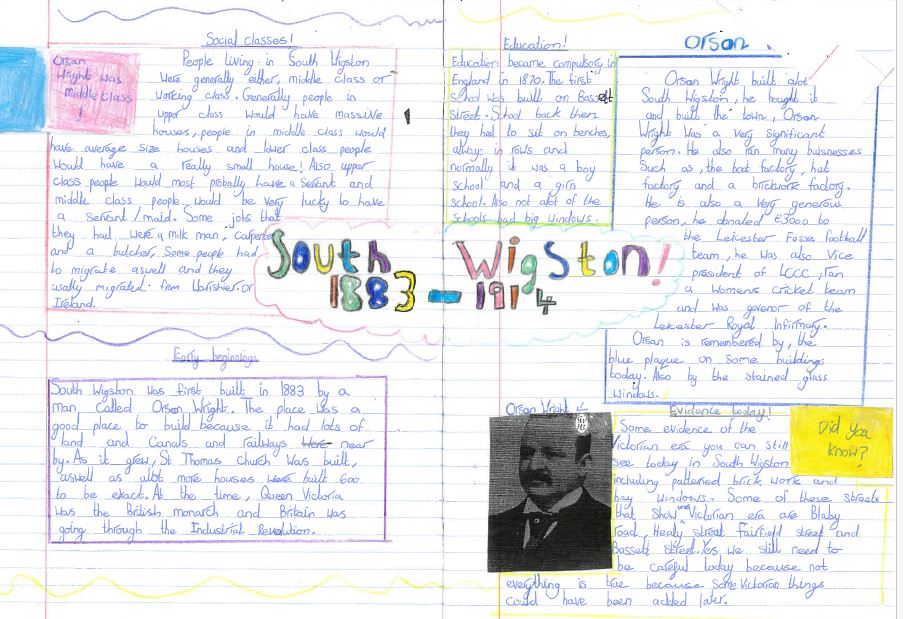 Social classes!
Orson
Wright was
Middle class
!
People living in South Wigston
were generally either, middle class or
working class. Generally people in
upper class would have massive
houses, people in middle class would
have average size houses and lower class people
would have a really small house! Also upper
class people would most probally have a servant and
middle class people would be very lucky to have
a servant/maid. Some jobs that
they had were a milk man, carpenter
and a butcher. Some people had
to migrate aswell and they
usally migrated from or
Ireland.
Education!
Education became compulsory in
England in 1870. The first
school was built on Bassett
Street. School back then
they had to sit on benches,
always in rows and
normally it was a boy
school and a girls
school. Also not alot of the
schools had big windows.
Orson
Orson Wright built alot
South Wigston, he bought it
and built the town, Orson
Wright was a very significant
person. He also ran many buisnesses
Such as, the boot factory, hub
factory and a brickwork factory.
He is also a very generous
person, he donated £3000 to
the Leicester Fosse football
team, he was also vice
president of LCCC, ran
a womens cricket team
and was governor of the
Leicester Royal Infirmary.
Orson is remembered by, the
blue plaque on some buildings
today. Also by the stained glass
windows.
South Wigston!
1883 - 1914
Early beginnings
South Wigston was first built in 1883 by a
man called Orson Wright. The place was a
good place to build because it had lots of
land and Canals and railways were near
by. As it grew, St Thomas church was built,
aswell as alot more houses were built 600
to be exact. At the time, Queen Victoria
was the British monarch and Britain was
going through the Industrial Revolution.
Orson Wright
Evidence today!
Did you
know?
Some evidence of the
Victorian era you can still
see today in South Wigston
including patterned brick work and
bay windows. Some of these streets
that show the Victorian era are Blaby
road, Healy street Fairfield street and
Bassett street. we still need to
be careful today because not
everything is true because some Victorian things
could have been added later.